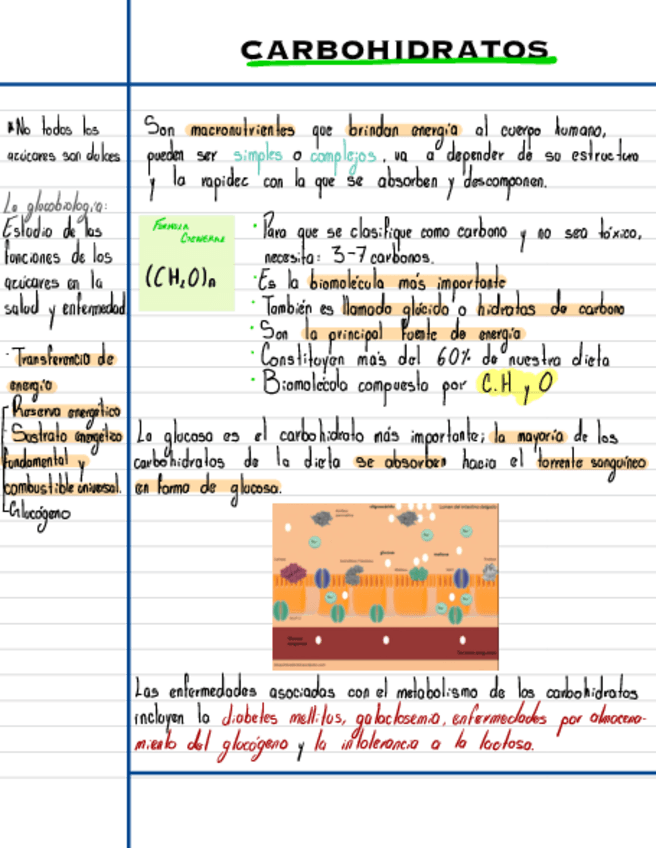 CARBOHIDRATOS
*No todos los
azúcares son dulces
La glucobiología:
Estudio de las
funciones de los
azúcares en la
salud y enfermedad
· Transferencia de
energía
Reserva energético
Sustrato energético
fundamental y
combustible universal.
Glucógeno
Son macronutrientes que brindan energía al cuerpo humano,
pueden ser simples o complejos, va a depender de su estructura
y la rapidec con la que se absorben y descomponen.
FORMULA
GENERAL
(CH2O)n
· Para que se clasifique como carbono y no sea tóxico,
necesita: 3-7 carbonos.
· Es la biomolécula más importante
· También es llamado glúcido o hidratos de carbono
· Son la principal fuente de energía
· Constituyen más del 60% de nuestra dieta
· Biomolécula compuesta por C.H y O
La glucosa es el carbohidrato más importante; la mayoría de los
carbohidratos de la dieta se absorben hacia el torrente sanguíneo
en forma de glucosa.
Lumen del intestino delgado
Las enfermedades asociadas con el metabolismo de los carbohidratos
incluyen la diabetes mellitus, galactosemia, enfermedades por almacena-
miento del glucógeno y la intolerancia a la lactosa.